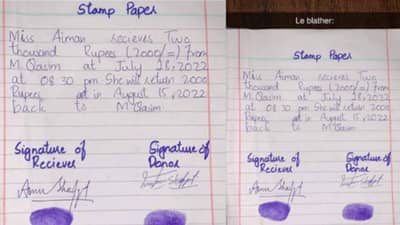 Stamp Paper
Miss Aiman recieves Two
thousand Rupees (2000/=) from
M.Qasim at July 28,2022
at 08 30 pm. She will return 2000
Rupees at in August 15,2022
back to M Qasim
Signature of
Reciever
Signature of
Donor
Le blather:
Stamp Paper
Miss Aiman recieves Two
thousand Rupees (2000/=) from
M.Qasim at July 28,2022
at 08 30 pm. She will return 2000
Rupees at in August 15,2022
back to M Qasim
Signature of
Reciever
Signature of
Donor